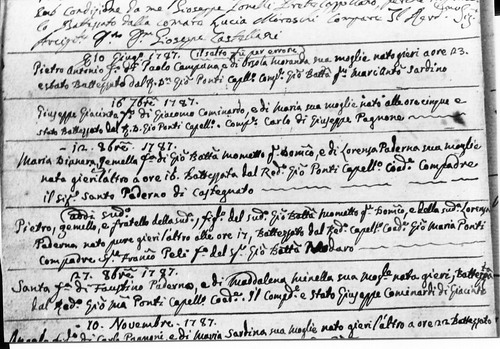 sud Condizione da me Gioseppe
e Battezzato dalla comare Lucia Morosini Compare Il Revd.
Arcipte Gioseppe Castellani
Adi 10 Giugo 1787. il salto fu per errore
Pietro Antonio fo. di Paolo Campana, e di Orsola Moranda sua moglie nato gieri a ore 23.
e stato Battezzato dal R. D. Gio Ponti Capello Compe. Gio Batta qm. Marc'Anto Sardino
16 7bre 1787.
Giuseppe Giacinto fo. di Giacomo Cominardo, e di Maria sua moglie nato alle ore cinque e
stato Battezzato dal R. D. Gio Ponti Capello. Compe. Carlo di Giuseppe Pagnone
12. 8bre 1787.
Maria gemella fa. di Gio Batta Mometto qm. Domco, e di Lorenza Paderna sua moglie
nata gieri l'altro a ore 16. Battezzata dal Red. Gio Ponti Capello Coadre. Compadre
il sigr. Santo Paderno di Castegnato
adi sudo.
Pietro, gemello, e fratello della suda., figo. del sudo. Gio Batta Mometto qm. Domco, e della suda. Lorenza
Paderna, nato pure gieri l'altro alle ore 17, Battezzato dal Red. Capello Coadre. Gio Maria Ponti
Compadre sigr. Franco Peli fo. del sigr. Gio Batta
27. 8bre 1787.
Santa fa. di Faustino Paderno, e di Maddalena Minella sua mogle. nata gieri, Battezza
dal Red. Gio Ma Ponti Capello Coadre. Il Compde. e stato Giuseppe Cominardi di Giacinto
10. Novembre 1787.
di Carlo Pagnoni, e di Maria Sardina sua moglie nato gieri l'altro a ore 22 Battezzato